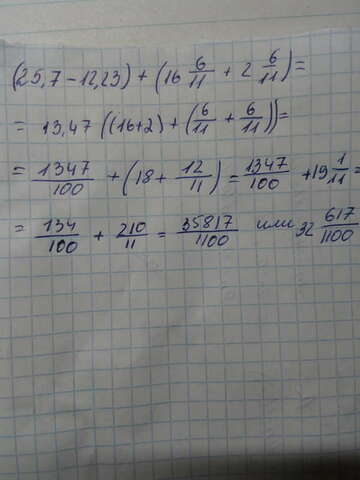 (25,7 - 12,23) + (16 6/11 + 2 6/11) =
= 13,47 ((16+2) + (6/11 + 6/11)) =
= 1347/100 + (18 + 12/11) = 1347/100 + 19 1/11 =
= 134/100 + 210/11 = 35817/1100 или 32 617/1100